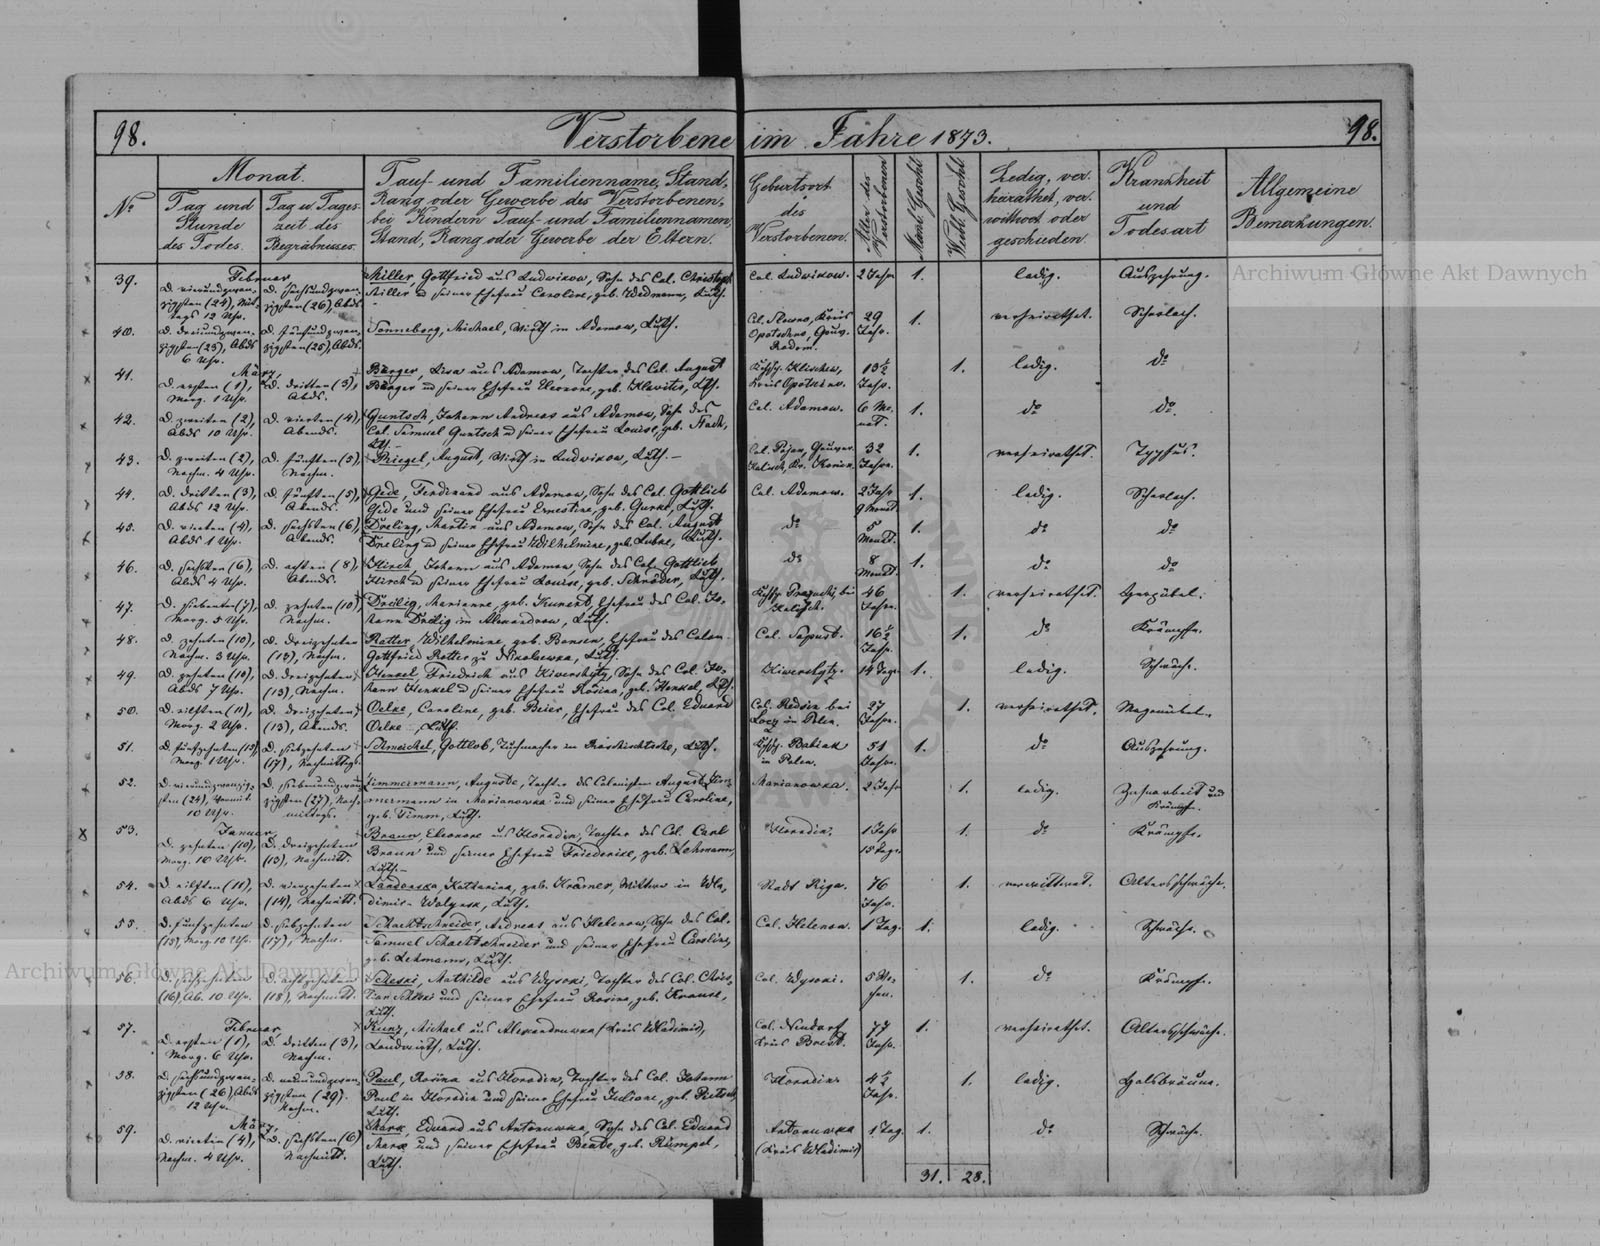 98.
Verstorbene im Jahre 1873.
98.
No
Monat.
Tag und Stunde des Todes.
Tag u Tages-zeit des Begräbnisses.
Tauf- und Familienname, Stand,
Rang oder Gewerbe des Verstorbenen,
bei Kindern Tauf- und Familiennamen,
Stand, Rang oder Gewerbe der Eltern.
Geburtsort des Verstorbenen.
Alter des Verstorbenen
Männl. Geschl.
Weibl. Geschl.
Ledig, ver-heirathet, ver-wittwet oder geschieden
Krankheit und Todesart
Allgemeine Bemerkungen.
Februar
39. D. vierundzwan- D. sechsundzwan- Miller, Gottfried aus Ludwikow, Sohn des Col. Christoph Col. Ludwikow. 2 Jahr 1. ledig. Auszehrung.
zigsten (24), Mit- zigsten (26), Abds. Miller u seiner Ehefrau Caroline, geb. Widmann, Luth.
tags 12 Uhr.
40. D. dreiundzwan- D. fünfundzwan- Sonneberg, Michael, Wirth in Adamow, Luth. Kreis 29 1. verheirathet. Scharlach.
zigsten (23), Abds zigsten (25), Abds. Opotschno, Gouv. Jahr.
6 Uhr. Radom.
März,
41. D. ersten (1), D. dritten (3), Bürger, Lisa aus Adamow, Tochter des Col. August 13½ 1. ledig. do
Morg. 1 Uhr. Abds. Bürger u seiner Ehefrau Eleonore, geb. Klawiter, Lth. Kreis Opotschno. Jahr.
42. D. zweiten (2), D. vierten (4), Guntsch, Johann Andreas aus Adamow, Sohn des Col. Adamow. 6 Mo- 1. do do
Abds 10 Uhr. Abends. Col. Samuel Guntsch u seiner Ehefrau Louise, geb. nat.
Lth.
43. D. zweiten (2), D. fünften (5), Priegel, August, Wirth in Ludwikow, Luth. Gouver. 32 1. verheirathet. Typhus.
Nachm. 4 Uhr. Nachm. Kalisch, Kr. Konin. Jahre.
44. D. dritten (3), D. fünften (5), Gede, Ferdinand aus Adamow, Sohn des Col. Gottlieb Col. Adamow. 2 Jahr 1. ledig. Scharlach.
Abds 12 Uhr. Abends. Gede und seiner Ehefrau Ernestine, geb. Luth. 9 Monat.
45. D. vierten (4), D. sechsten (6), Dreling, Martin aus Adamow, Sohn des Col. August do 5 1. do do
Abds 1 Uhr. Abends. Dreling u seiner Ehefrau Wilhelmine, geb. Luth. Monat.
46. D. sechsten (6), D. achten (8), Hirsch, Johann aus Adamow, Sohn des Col. Gottlieb do 8 1. do do
Abds 4 Uhr. Abends. Hirsch u seiner Ehefrau Louise, geb. Schröder, Luth. Monat.
47. D. siebenten (7), D. zehnten (10), Marianne, geb. Kunert, Ehefrau des Col. Jo- bei 46 1. verheirathet.
Morg. 5 Uhr. Nachm. hann in Alexandrow, Luth. Kalisch. Jahre.
48. D. zehnten (10), D. dreizehnten Ratter, Wilhelmine, geb. Bonsen, Ehefrau des Colon. 16½ 1. do Krämpfe.
Nachm. 3 Uhr. (13), Nachm. Gottfried Ratter zu Nikolaewka, Luth. Jahr.
49. D. zehnten (10), D. dreizehnten Henkel, Friedrich aus Kiwerchytz, Sohn des Col. Jo- Kiwerchytz. 14 Tage 1. ledig. Schwäche.
Abds 7 Uhr. (13), Nachm. hann Henkel u seiner Ehefrau Rosina, geb. Henkel, Lth.
50. D. eilften (11), D. dreizehnten, Oelke, Caroline, geb. Beier, Ehefrau des Col. Eduard bei 27 1. verheirathet. Magenübel.
Morg. 2 Uhr. (13), Abends. Oelke, Luth. in Polen. Jahre.
51. D. fünfzehnten (15), D. siebzehnten Schmeichel, Gottlob, Tuchmacher in Luth. Babiak 51 1. do Auszehrung.
Morg. 1 Uhr. (17), Nachmittags. in Polen. Jahre.
52. D. vierundzwanzig- D. siebenundzwan- Zimmermann, Auguste, Tochter des Colonisten August Zim- Marianowka. 2 Jahr 1. ledig. Zahnarbeit und
sten (24), Vormit. zigsten (27), Nach- mermann in Marianowka und seiner Ehefrau Caroline, Krämpfe.
10 Uhr. mittags. geb. Timm, Luth.
Januar
53. D. zehnten (10), D. dreizehnten Braun, Eleonore aus Horadin, Tochter des Col. Carl Horadin. 1 Jahr 1. do Krämpfe.
Morg. 10 Uhr. (13), Nachmitt. Braun und seiner Ehefrau Friederike, geb. Lehmann, 15 Tage.
Luth.
54. D. eilften (11), D. vierzehnten Katharina, geb. Krämer, Wittwe in Wla- Stadt Riga. 76 1. verwittwet. Altersschwäche.
Abds 6 Uhr. (14), Nachmitt. dimir-Wolynsk, Luth. Jahr.
55. D. fünfzehnten D. siebzehnten Schachtschneider, Andreas aus Helenow, Sohn des Col. Col. Helenow. 1 Tag. 1. ledig. Schwäche.
(15), Morg. 10 Uhr. (17), Nachm. Samuel Schachtschneider und seiner Ehefrau Caroline,
geb. Lehmann, Luth.
56. D. sechzehnten D. achtzehnten Scheski, Mathilde aus Wysoki, Tochter des Col. Chris- Col. Wysoki. 5 Wo- 1. do Krämpfe.
(16), Ab. 10 Uhr. (18), Nachmitt. tian Scheski und seiner Ehefrau Rosina, geb. Krause, chen.
Luth.
Februar
57. D. ersten (1), D. dritten (3), Kunz, Michael aus Alexandrowka (Kreis Wladimir), Col. Neudorf 77 1. verheirathet. Altersschwäche.
Morg. 6 Uhr. Nachm. Landwirth, Luth. Kreis Brest. Jahr.
58. D. sechsundzwan- D. neunundzwan- Paul, Rosina aus Horadin, Tochter des Col. Johann Horadin 4½ 1. ledig. Halsbräune.
zigsten (26), Abds zigsten (29). Paul in Horadin und seiner Ehefrau Juliane, geb. Jahr.
12 Uhr. Nachm. Luth.
März,
59. D. vierten (4), D. sechsten (6) Mark, Eduard aus Antonuwka, Sohn des Col. Eduard Antonuwka 1 Tag. 1. do Schwäche.
Nachm. 4 Uhr. Nachmitt. Mark und seiner Ehefrau Beate, geb. Rümpel, (Kreis Wladimir)
Luth.
31. 28.
Archiwum Główne Akt Dawnych
Archiwum Główne Akt Dawnych